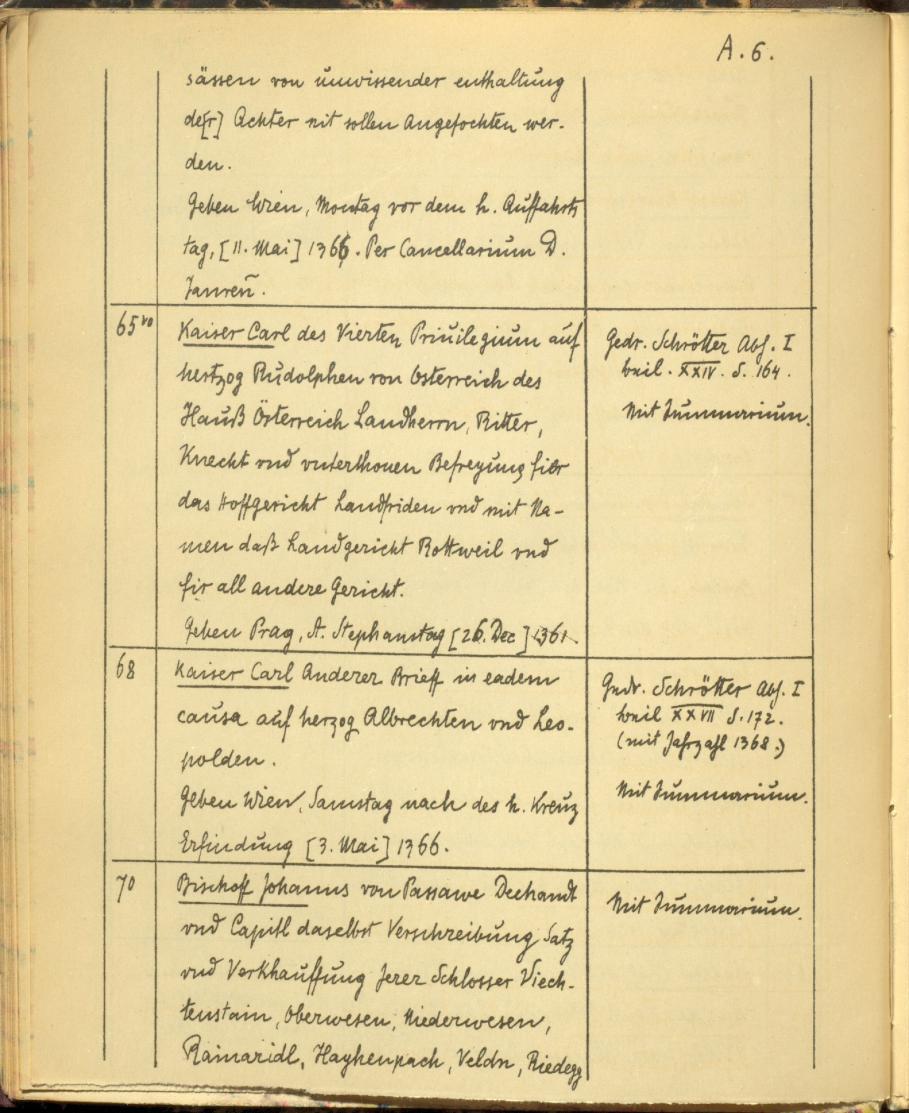 A. 6.
sässen von unwissender enthaltung
de[r] Ächter nit sollen Angefochten wer-
den.
Geben Wien, Montag vor dem h. Auffahrts
tag, [11. Mai] 1366. Per Cancellarium D.
65vo
Kaiser Carl des Vierten Priuilegium auf
hertzog Rudolphen von Osterreich des
Hauß Österreich Landherrn, Ritter,
Knecht vnd vnterthonen Befreyung fier
das Hoffgericht Landfriden vnd mit Na-
men daß Landgericht Rottweil vnd
fir all andere Gericht.
Geben Prag, St. Stephanstag [26. Dec] 1361
Gedr. Schrötter Abh. I
beil. XXIV. S. 164.
Mit Summarium.
68
Kaiser Carl Anderer Brieff in eadem
causa auf herzog Albrechten vnd Leo-
polden.
Geben Wien, Samstag nach des h. Kreuz
Erfindung [3. Mai] 1366.
Gedr. Schrötter Abh. I
beil XXVII S. 172.
(mit Jahrzahl 1368.)
Mit Summarium.
70
Bischoff Johanns von Passawe Dechandt
vnd Capitl daselbst Verschreibung Satz
vnd Verkhauffung Jerer Schlosser Viech-
tenstain, Oberwesen, Niederwesen,
Rainaridl, Hayhenpach, Veldn, Riedegg
Mit Summarium.